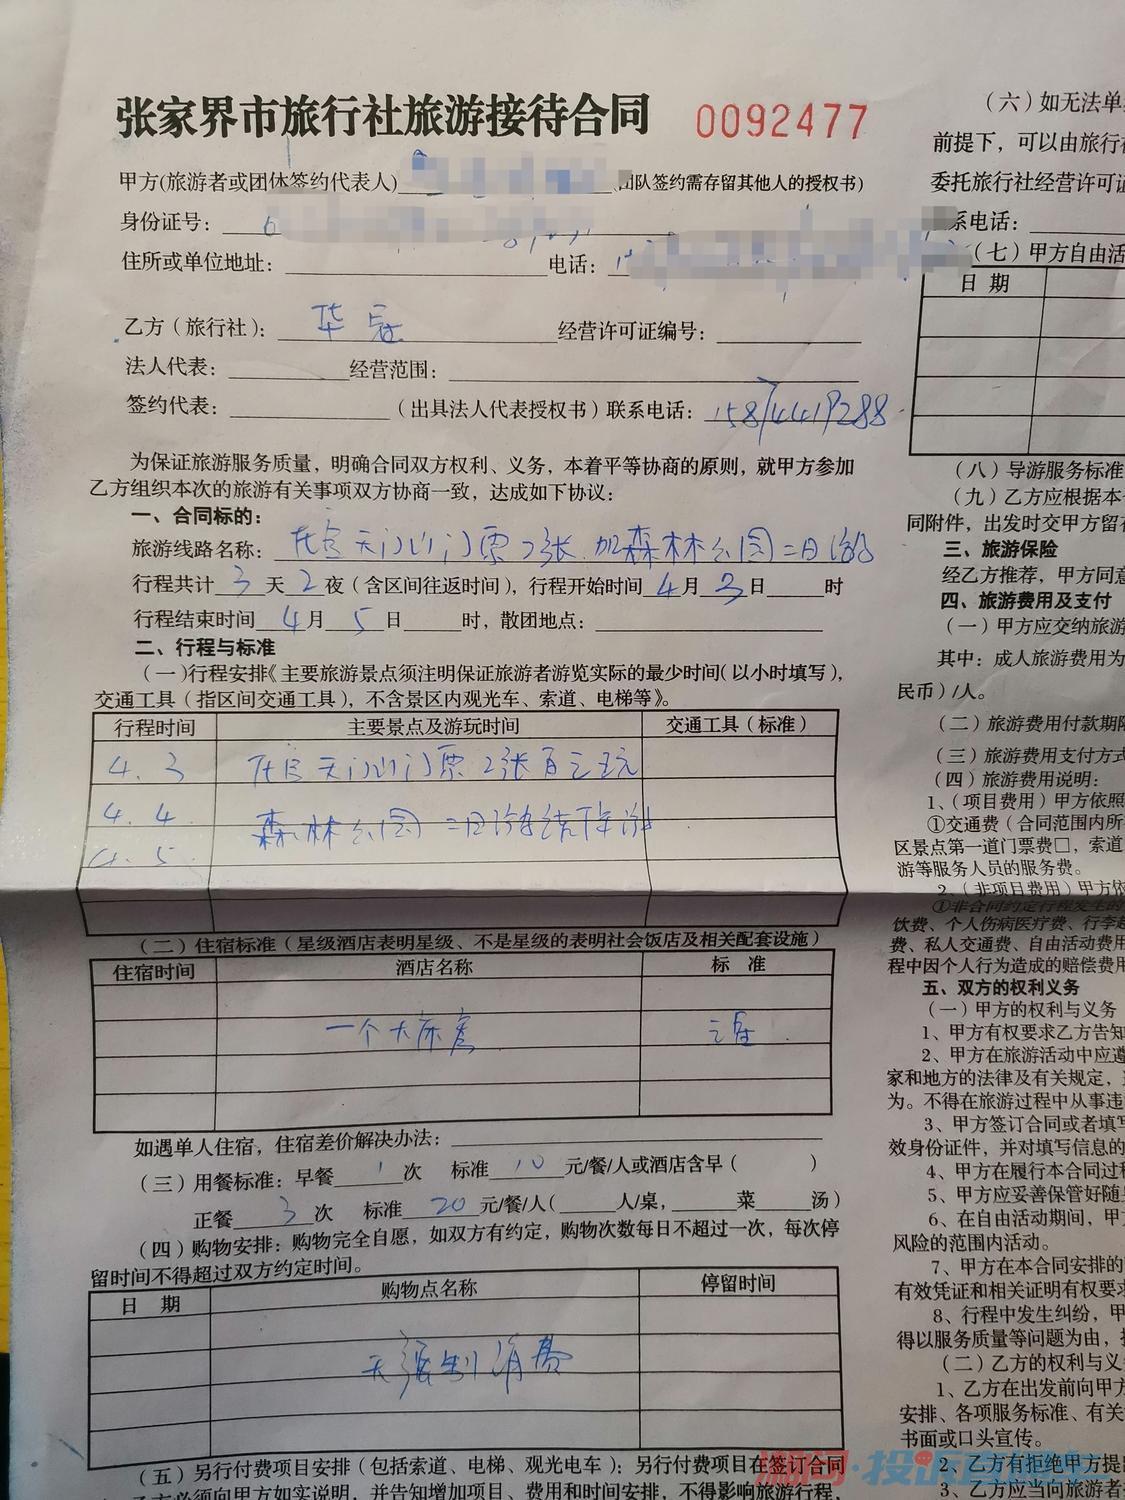 张家界市旅行社旅游接待合同 0092477
甲方(旅游者或团体签约代表人) (团队签约需存留其他人的授权书)
身份证号: 6
住所或单位地址: 电话:
乙方(旅行社): 华冠 经营许可证编号:
法人代表: 经营范围:
签约代表: (出具法人代表授权书)联系电话: 15874419288
为保证旅游服务质量,明确合同双方权利、义务,本着平等协商的原则,就甲方参加
乙方组织本次的旅游有关事项双方协商一致,达成如下协议:
一、合同标的:
旅游线路名称: 天门山门票2张 加森林公园二日游
行程共计3天2夜(含区间往返时间),行程开始时间4月3日 时
行程结束时间4月5日 时,散团地点:
二、行程与标准
(一)行程安排《主要旅游景点须注明保证旅游者游览实际的最少时间(以小时填写),
交通工具(指区间交通工具),不含景区内观光车、索道、电梯等》。
行程时间 主要景点及游玩时间 交通工具(标准)
4.3 天门山门票2张自己玩
4.4 森林公园二日游
4.5
(二)住宿标准(星级酒店表明星级、不是星级的表明社会饭店及相关配套设施)
住宿时间 酒店名称 标 准
一个大床房
如遇单人住宿,住宿差价解决办法:
(三)用餐标准:早餐1次 标准10元/餐/人或酒店含早( )
正餐3次 标准20元/餐/人( 人/桌, 菜 汤)
(四)购物安排:购物完全自愿,如双方有约定,购物次数每日不超过一次,每次停
留时间不得超过双方约定时间。
日 期 购物点名称 停留时间
无强制消费
(五)另行付费项目安排(包括索道、电梯、观光电车):另行付费项目在签订合同
乙方必须向甲方如实说明,并告知增加项目、费用和时间安排,不得影响旅游行程,
(六)如无法单
前提下,可以由旅行
委托旅行社经营许可证
系电话:
(七)甲方自由活
日 期
(八)导游服务标准
(九)乙方应根据本
同附件,出发时交甲方留存
三、旅游保险
经乙方推荐,甲方同意
四、旅游费用及支付
(一)甲方应交纳旅游
其中:成人旅游费用为
民币)/人。
(二)旅游费用付款期限
(三)旅游费用支付方式
(四)旅游费用说明:
1、(项目费用)甲方依照
①交通费(合同范围内所
区景点第一道门票费□,索道
游等服务人员的服务费。
2、(非项目费用)甲方依
①非合同约定行程发生的
饮费、个人伤病医疗费、行李超
费、私人交通费、自由活动费用
程中因个人行为造成的赔偿费用
五、双方的权利义务
(一)甲方的权利与义务
1、甲方有权要求乙方告知
2、甲方在旅游活动中应遵
家和地方的法律及有关规定,
为。不得在旅游过程中从事违
3、甲方签订合同或者填写
效身份证件,并对填写信息的
4、甲方在履行本合同过程
5、甲方应妥善保管好随身
6、在自由活动期间,甲方
风险的范围内活动。
7、甲方在本合同安排的
有效凭证和相关证明有权要求
8、行程中发生纠纷,甲
得以服务质量等问题为由,
(二)乙方的权利与义务
1、乙方在出发前向甲方
安排、各项服务标准、有关
书面或口头宣传。
2、乙方有拒绝甲方提
3、乙方应当向旅游者
湘问·投诉直通车